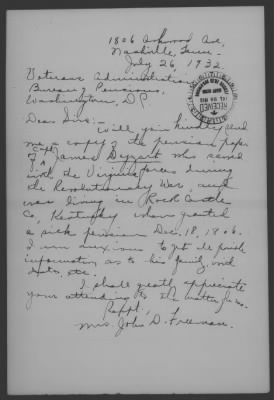 1806 Ave,
Nashville, Tenn -
July 26, 1932.
Veterans Administration
Bureau of Pensions,
Washington, D.C.
Dear Sirs:-
Will you kindly send
me a copy of the pension paper
of Capt James Dysart who served
with the Virginia forces during
the Revolutionary War, and
was living in Rock Castle
Co, Kentucky when granted
a pension Dec. 18, 1806.
I am anxious to get
information as to his family, and
data, etc.
I shall greatly appreciate
your attending to the matter for me.
Respt.,
Mrs. John D. Freeman.
RECEIVED